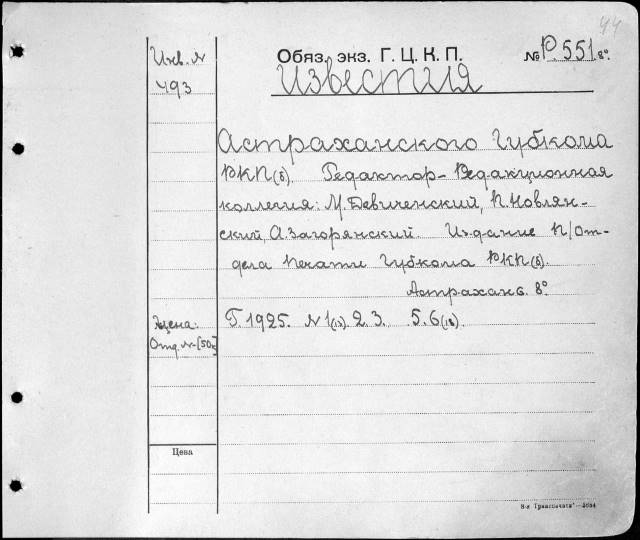 44
Инв. №
493
Обяз. экз. Г. Ц. К. П.
№ Р. 551 8°.
Известия
Астраханского Губкома
РКП(б). Редактор – Редакционная
коллегия: М. Девиченский, П. Новлян-
ский, А. Загорянский. Издание П/От-
дела Печати Губкома РКП(б).
Астрахань. 8°
Г. 1925. №1(13) 2. 3. 5. 6(18).
цена:
Отд. № [50к]
Цена
8-я Гранпечать"—3684